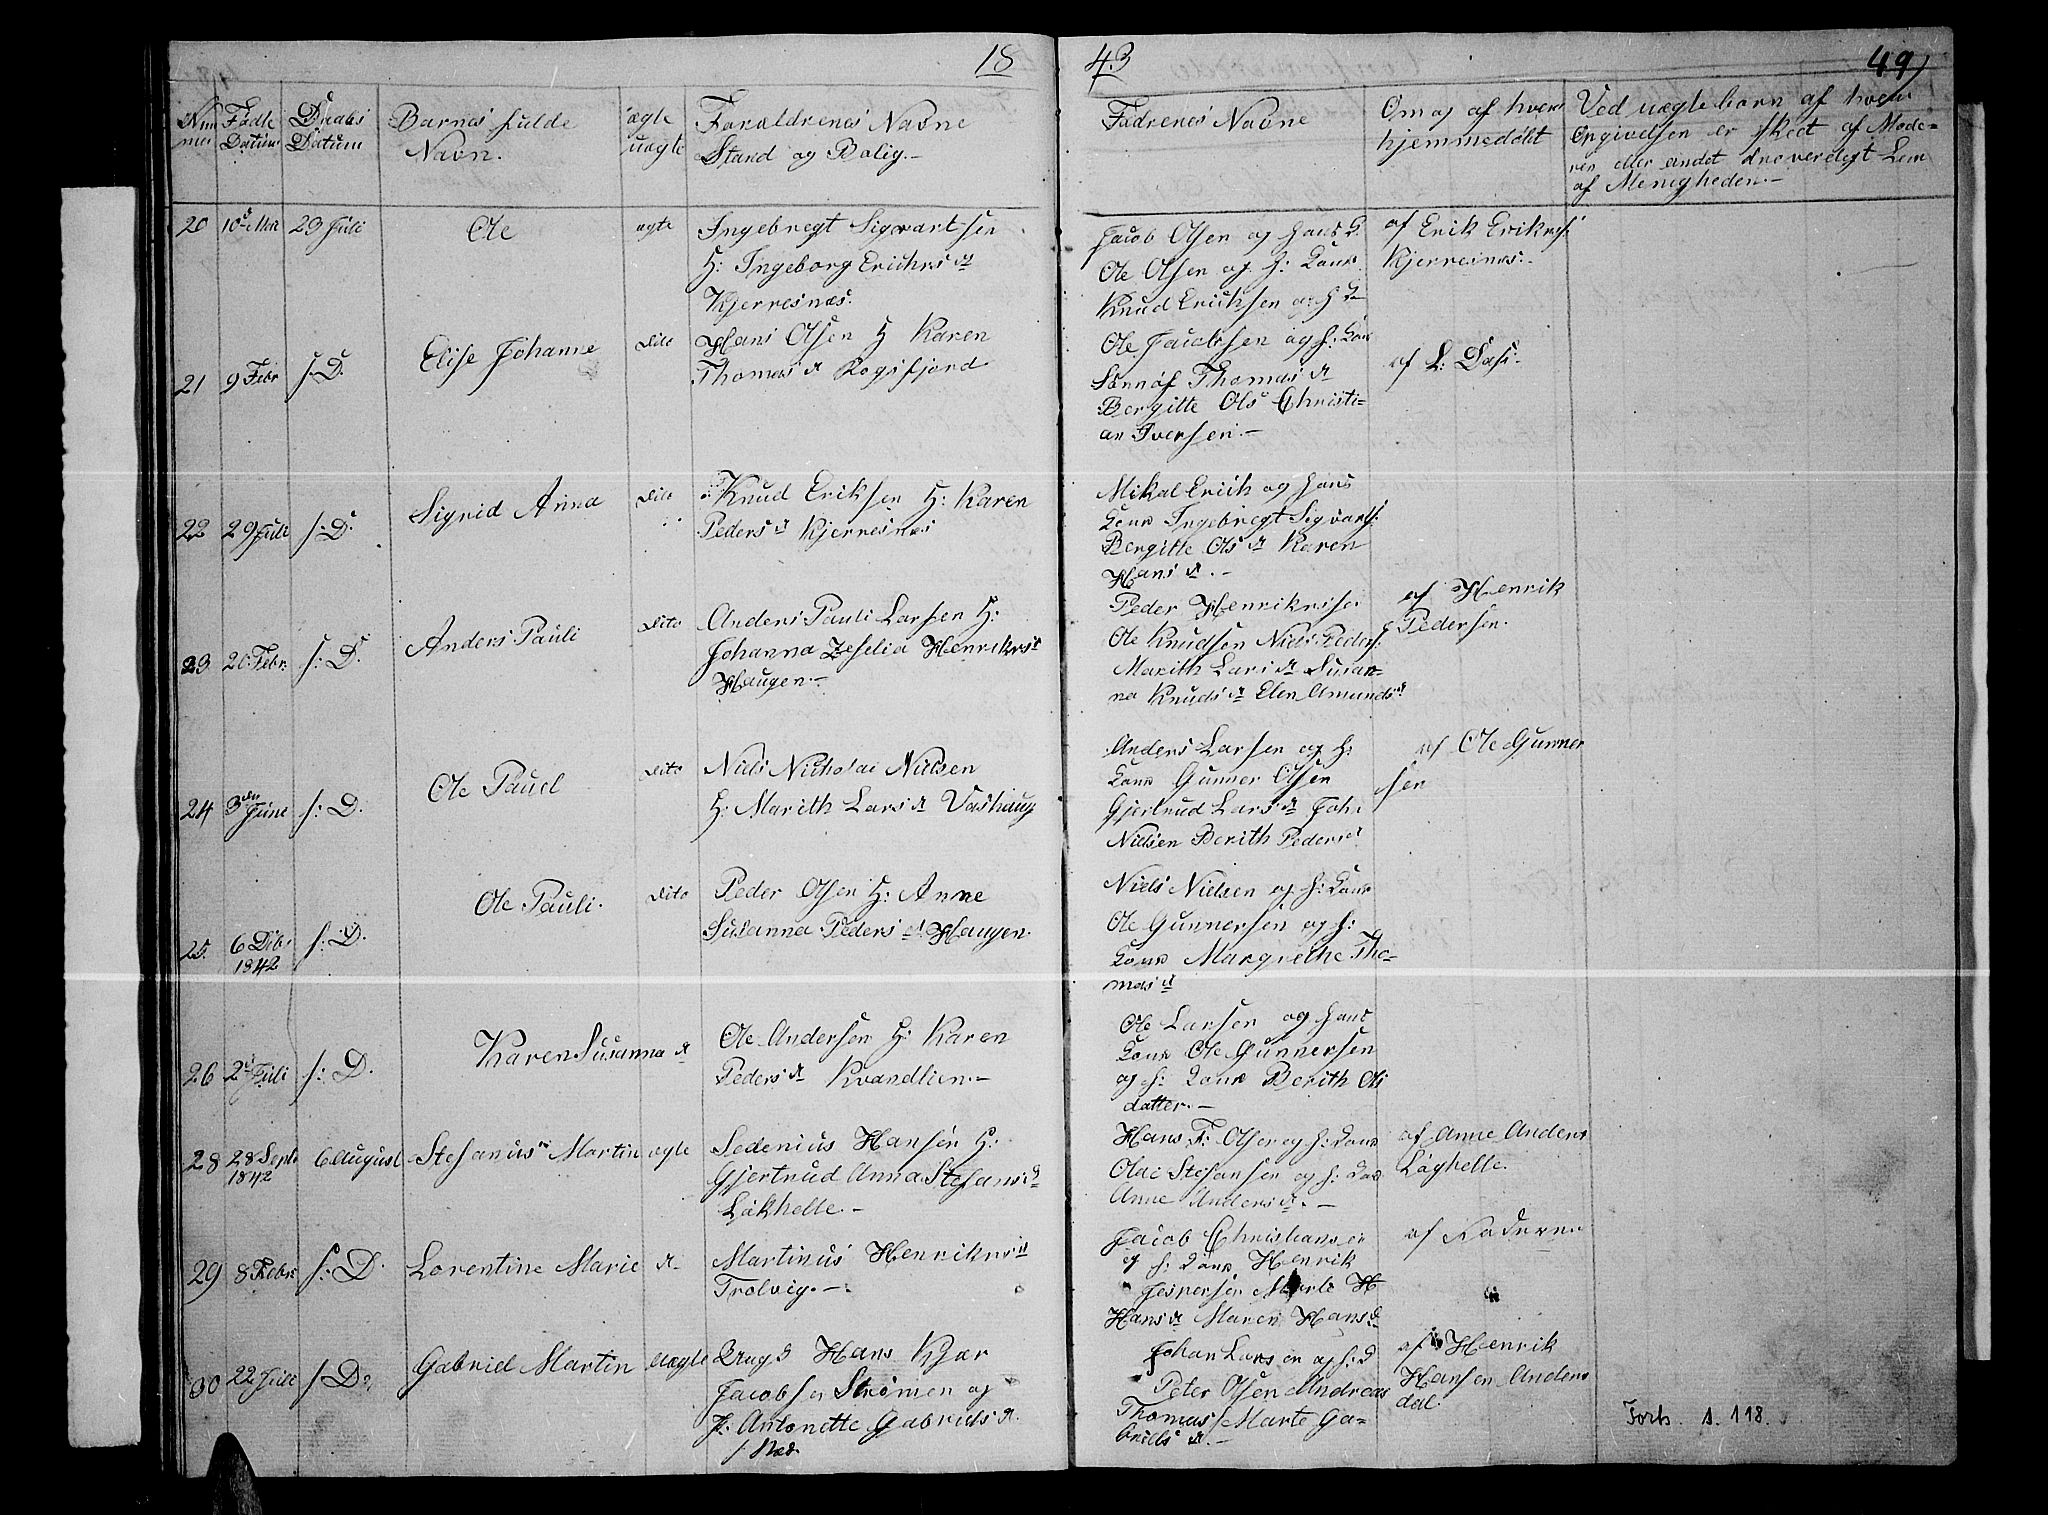 18 43
49
Num
mer
Fødte
Datum
Daabs
Datum
Barnets fulde
Navn.
ægte
uægte
Foraldrenes Navne
Stand og Bolig.-
Fadrenes Navne
Om og af hvem
hjemmedøbt
Ved uægte børn af hvem
Opgivelsen er skeet af Mode-
ren eller andet troverdigt Lem
af Menigheden.-
20 10de Mai 23 Juli Ole ægte
Ingebregt Sigvartsen
H: Ingeborg Erichs d
Kjerresnæs.
Jacob Olsen og hans K.
Ole Olsen og h: Kone
Knud Eriksen og h K
af Erik Eriks:
Kjerresnæs.-
21 9 Febr s. D. Elise Johanne dito
Hans Olsen H Karen
Thomas d Rogsfjord
Ole Jacobsen og h: Kone
Thomas d
Bergitte Ols Christi-
an Iversen.-
af L:
22 29 Juli s: D. Sigrid Anna dito
Knud Eriksen H: Karen
Peders d Kjerresnæs
Mikal Erich og hans
Kone Ingebregt Sigvarts:
Bergitte Ols d Karen
Hans d.-
23 20 Febr: s: D. Anders Pauli dito
Anders Pauli Larsen H:
Johanna Zeselia Henriks d
Haugen.-
Peder Henriksen
Ole Knudsen Niels Peders
Marith Lars d Susan-
na Knuds d Elen Amunds d
af Henrik
Pedersen.
24 3den June s: D. Ole Paul dito
Niels Nicholai Nielsen
H: Marith Lars d Vashaug
Anders Larsen og h:
Kone Gunner Olsen
Gjertrud Lars d Joh.
Nielsen Berith Peders d
af Ole Gunner
sen
25. 6 Dcbr 1842 s: D. Ole Pauli. dito
Peder Olsen H: Anne
Susanna Peders d Haugen.
Niels Nielsen og h: Kone
Ole Gunnersen og h:
Kone Margrethe Tho-
mas d
26 2 Juli s: D. Karen Susanna d
Ole Andersen H: Karen
Peders d Kvandlien.-
Ole Larsen og hans
Kone Ole Gunnersen
og h: Kone Berith Ols
datter.-
28 28 Sept 1842 6 August Stefanus Martin ægte
Sedenius Hansen H:
Gjertrud Anna Stefans d
Løkhelle.-
Hans F: Olsen og h: Kone
Olai Stefansen og h: Kone
Anne Anders d.-
af Anne Anders
Løghelle.
29 8 Febr s: D. Lorentine Marie d-
Martinus Henriks
Trolvig.-
Jacob Christiansen
og h: Kone Henrik
Jespersen Marte H
Hans d Maren Hans d
af Faderen
30 22 Juli s D: Gabriel Martin uægte
Ung K Hans Kjær
Jacobsen Strømen og
P: Antonette Gabriels d.
Johan Larsen og h: K
Peter Olsen Andreas
Thomas Marte Ga-
briels d.-
af Henrik
Hansen Anders
dal.
Forts. s. 118.